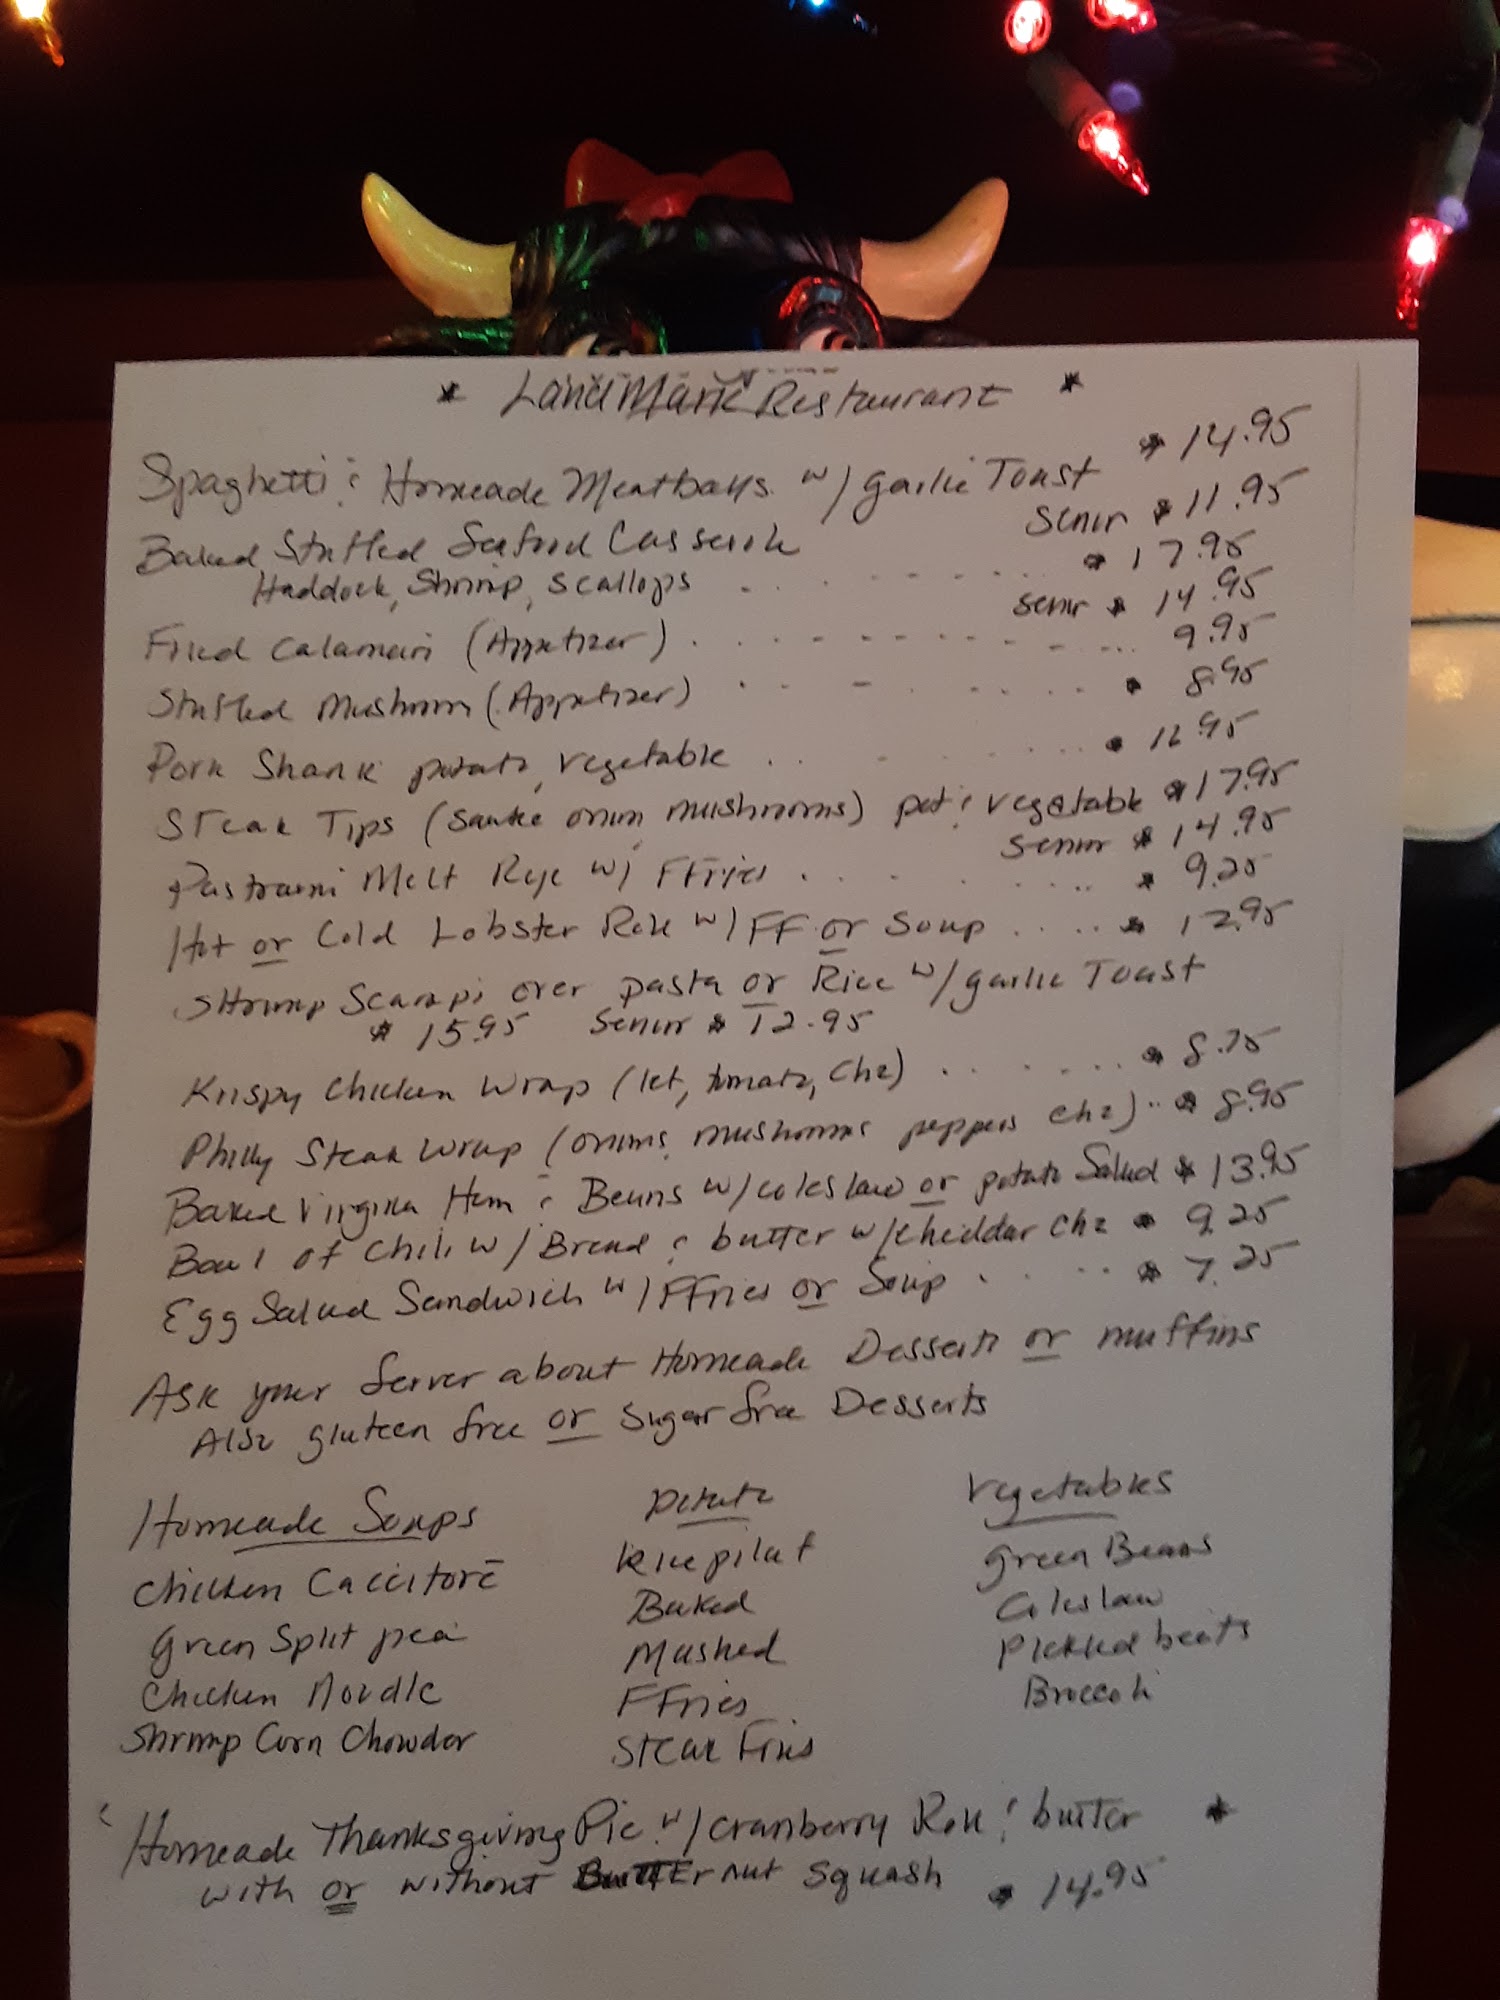 * LandMark Restaurant *
Spaghetti & Homeade Meatballs w/ garlic Toast * 14.95
Senior * 11.95
Baked Stuffed Seafood Casserole
Haddock, Shrimp, scallops . . . . . * 17.95
Senior * 14.95
Fried Calamari (Appetizer) . . . . . . . . 9.95
Stuffed Mushroom (Appetizer) . . . . . * 8.95
Pork Shank potato, vegetable . . . . . * 12.95
Steak Tips (Sautee onion mushrooms) pot & vegetable * 17.95
Senior * 14.95
Pastrami Melt Rye w/ FFries . . . . . * 9.25
Hot or Cold Lobster Roll w/ FF or Soup . . . . * 12.95
Shrimp Scampi over pasta or Rice w/ garlic Toast
* 15.95 Senior * 12.95
Krispy Chicken Wrap (let, tomato, Chz) . . . . . . * 8.75
Philly Steak Wrap (onions, mushrooms peppers chz) .. * 8.95
Baked Virginia Ham & Beans w/ coleslaw or potato Salad * 13.95
Bowl of Chili w/ Bread & butter w/ cheddar chz * 9.25
Egg Salad Sandwich w/ FFries or Soup . . . . * 7.25
Ask your Server about Homeade Desserts or muffins
Also gluten free or Sugar free Desserts
Homeade Soups
Chicken Caccitore
Green Split pea
Chicken Noodle
Shrimp Corn Chowder
Potato
Rice pilaf
Baked
Mashed
FFries
Steak Fries
Vegetables
Green Beans
Coleslaw
Pickled beets
Broccoli
Homeade Thanksgiving Pie w/ cranberry Roll & butter *
with or without Butternut Squash * 14.95